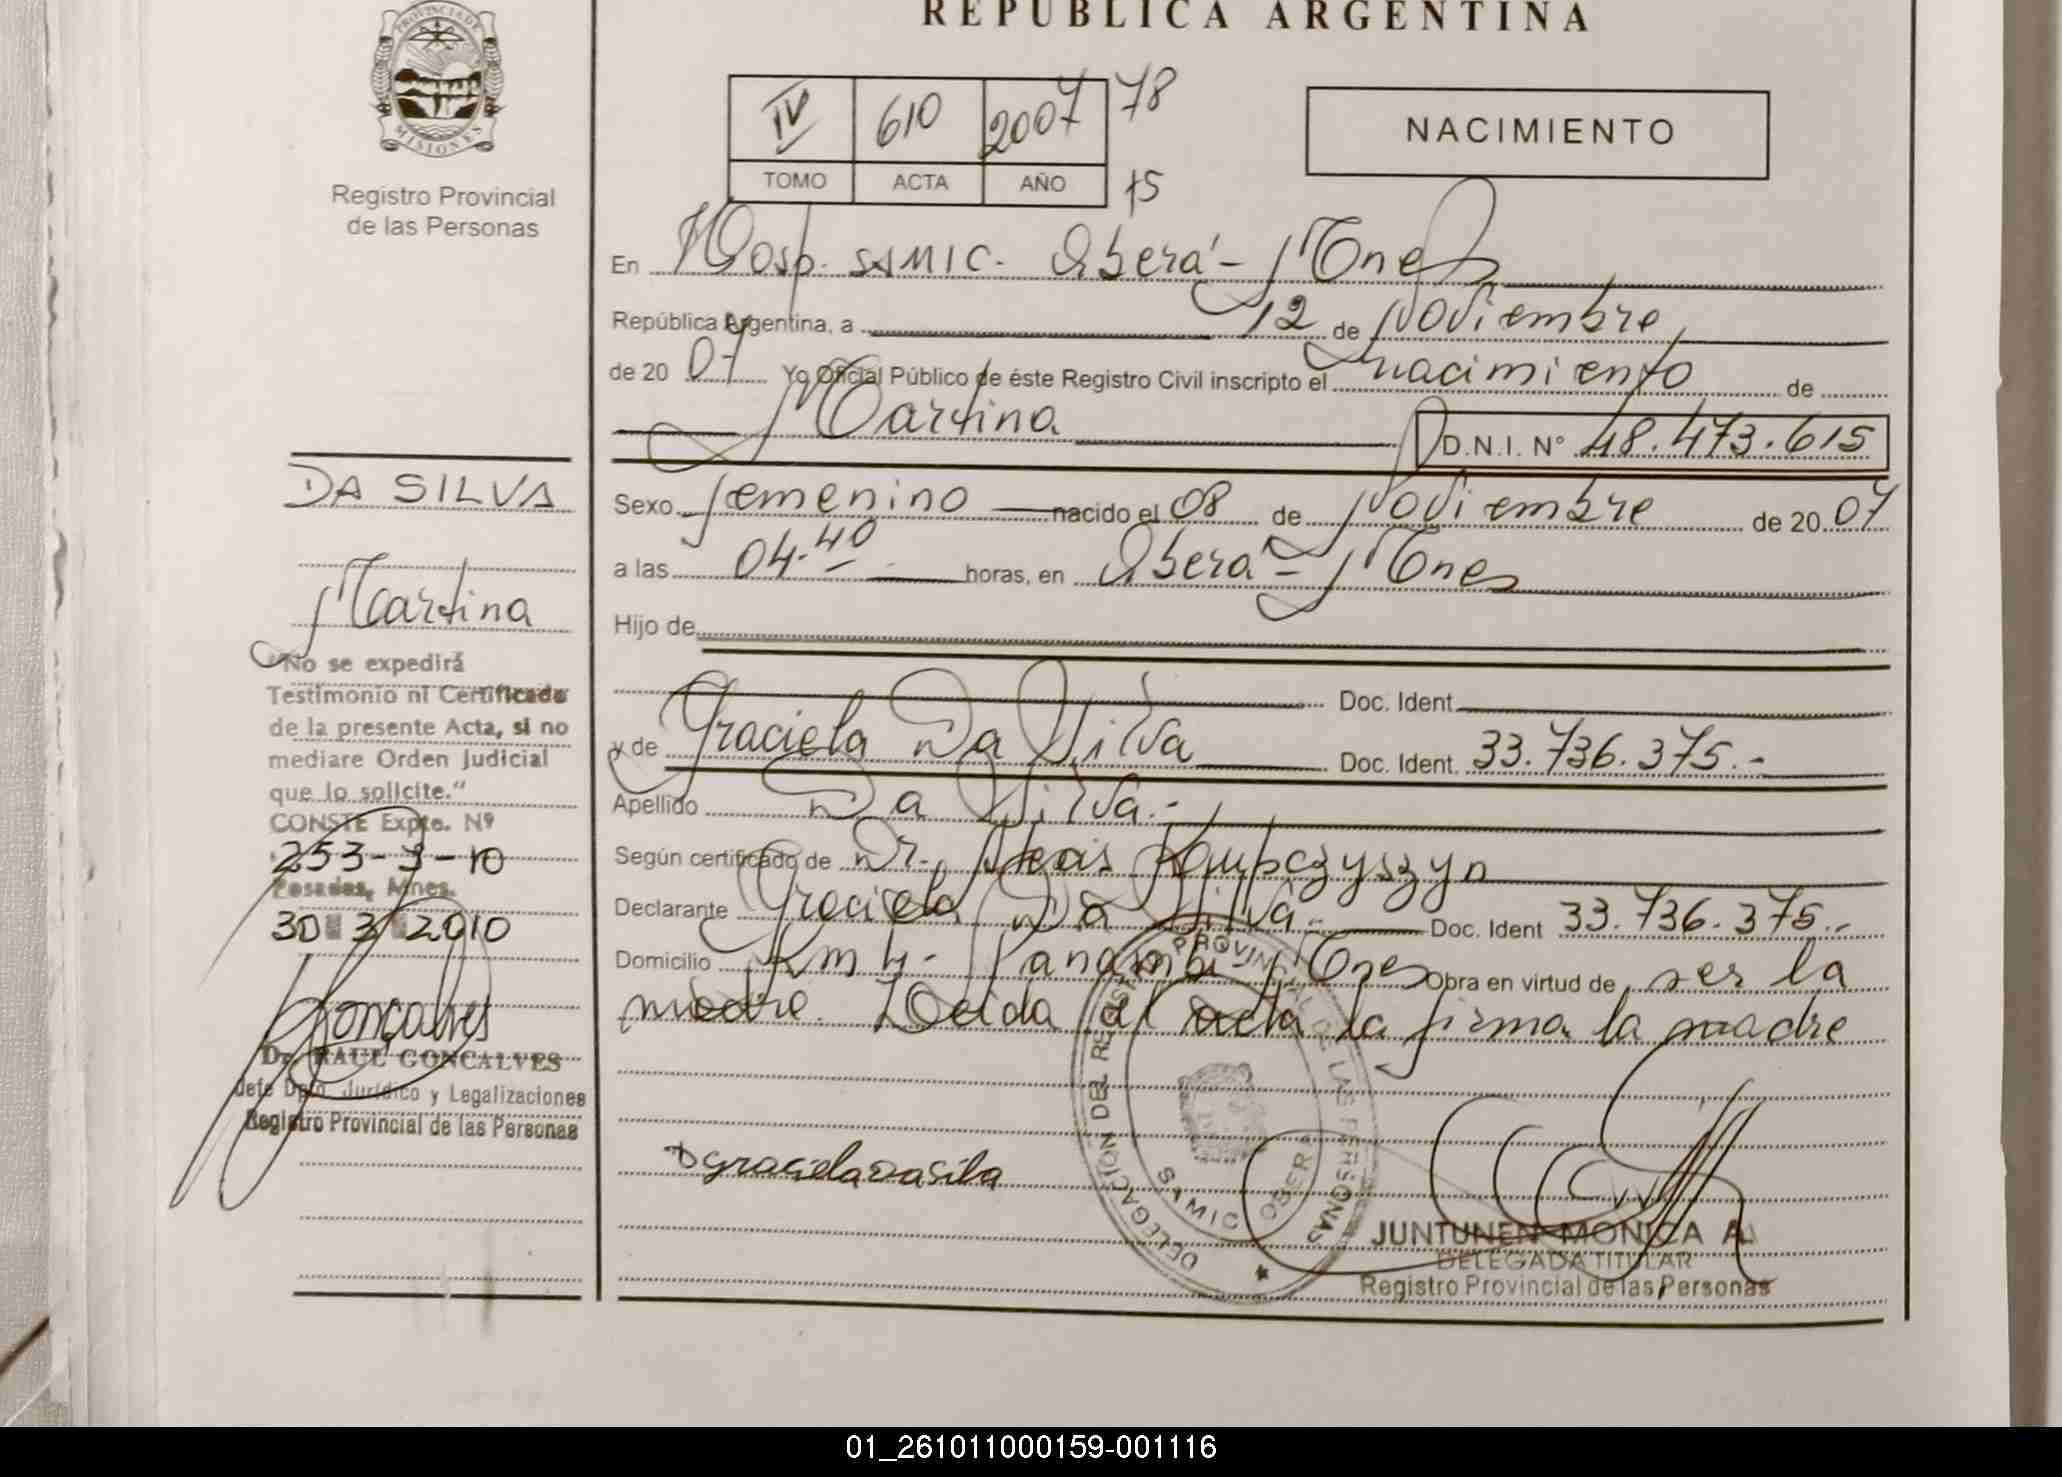 REPUBLICA ARGENTINA
PROVINCIA DE
MISIONES
Registro Provincial
de las Personas
IV 610 2007 78
TOMO ACTA AÑO 15
NACIMIENTO
En Hosp. SAMIC. Oberá - Mnes
República Argentina, a 12 de Noviembre
de 20 07 Yo Oficial Público de éste Registro Civil inscripto el nacimiento de
Martina D.N.I. N° 48.473.615
Sexo femenino nacido el 08 de Noviembre de 20 07
a las 04.40 horas, en Oberá - Mnes
Hijo de
Doc. Ident.
y de Graciela Da Silva Doc. Ident. 33.736.375.-
Apellido Da Silva.-
Según certificado de Dr.
Declarante Graciela Da Silva.- Doc. Ident 33.736.375.-
Domicilio Km 4 - Panambí Mnes Obra en virtud de ser la
madre. Leída el acta la firma la madre
DA SILVA
Martina
"No se expedirá
Testimonio ni Certificado
de la presente Acta, si no
mediare Orden Judicial
que lo solicite."
CONSTE Expte. Nº
253-3-10
Posadas, Mnes.
30 3 2010
Goncalves
Dr. RAUL GONCALVES
Jefe Dpto. Jurídico y Legalizaciones
Registro Provincial de las Personas
DELEGACION DEL REGISTRO PROVINCIAL DE LAS PERSONAS
SAMIC OBERA
JUNTUNEN MONICA A.
DELEGADA TITULAR
Registro Provincial de las Personas
01_261011000159-001116